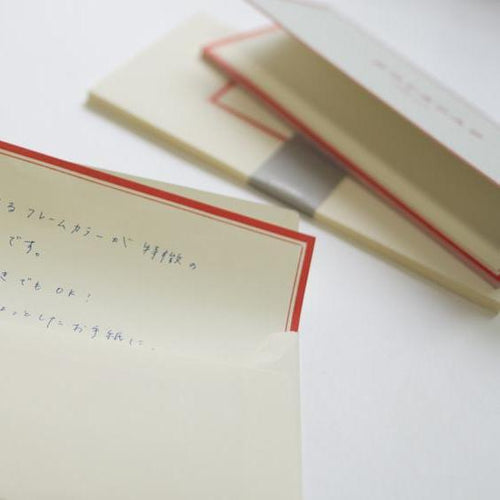 る フレームカラーが 特徴の
です。
きでもOK!
ょっとしたお手紙に、